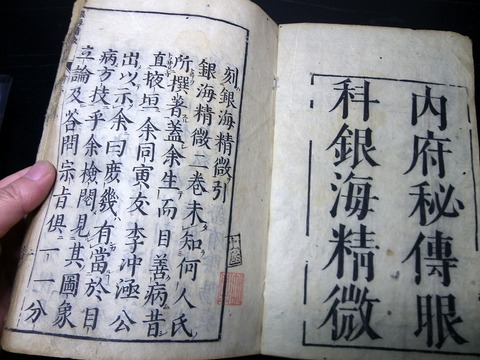 内府秘傳眼
科銀海精微
刻銀海精微引
銀海精微二卷未知何人氏
所撰著蓋余生而目善病昔
直掖垣余同寅友李冲涵公
出以示余曰庶幾有當於目
病方技乎余檢閱見其圖象
立論及荅問宗旨俱一一分